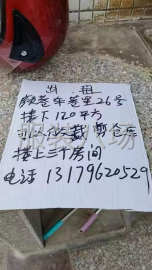 出租
敦巷牛巷里26号
楼下120平方
可以做裁剪仓库
楼上三个房间
电话13179620529